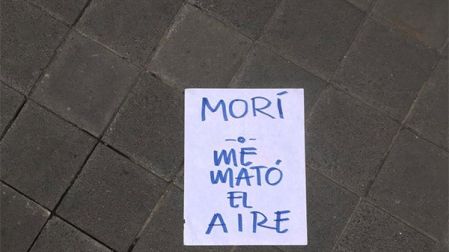 MORÍ
ME
MATÓ
EL
AIRE